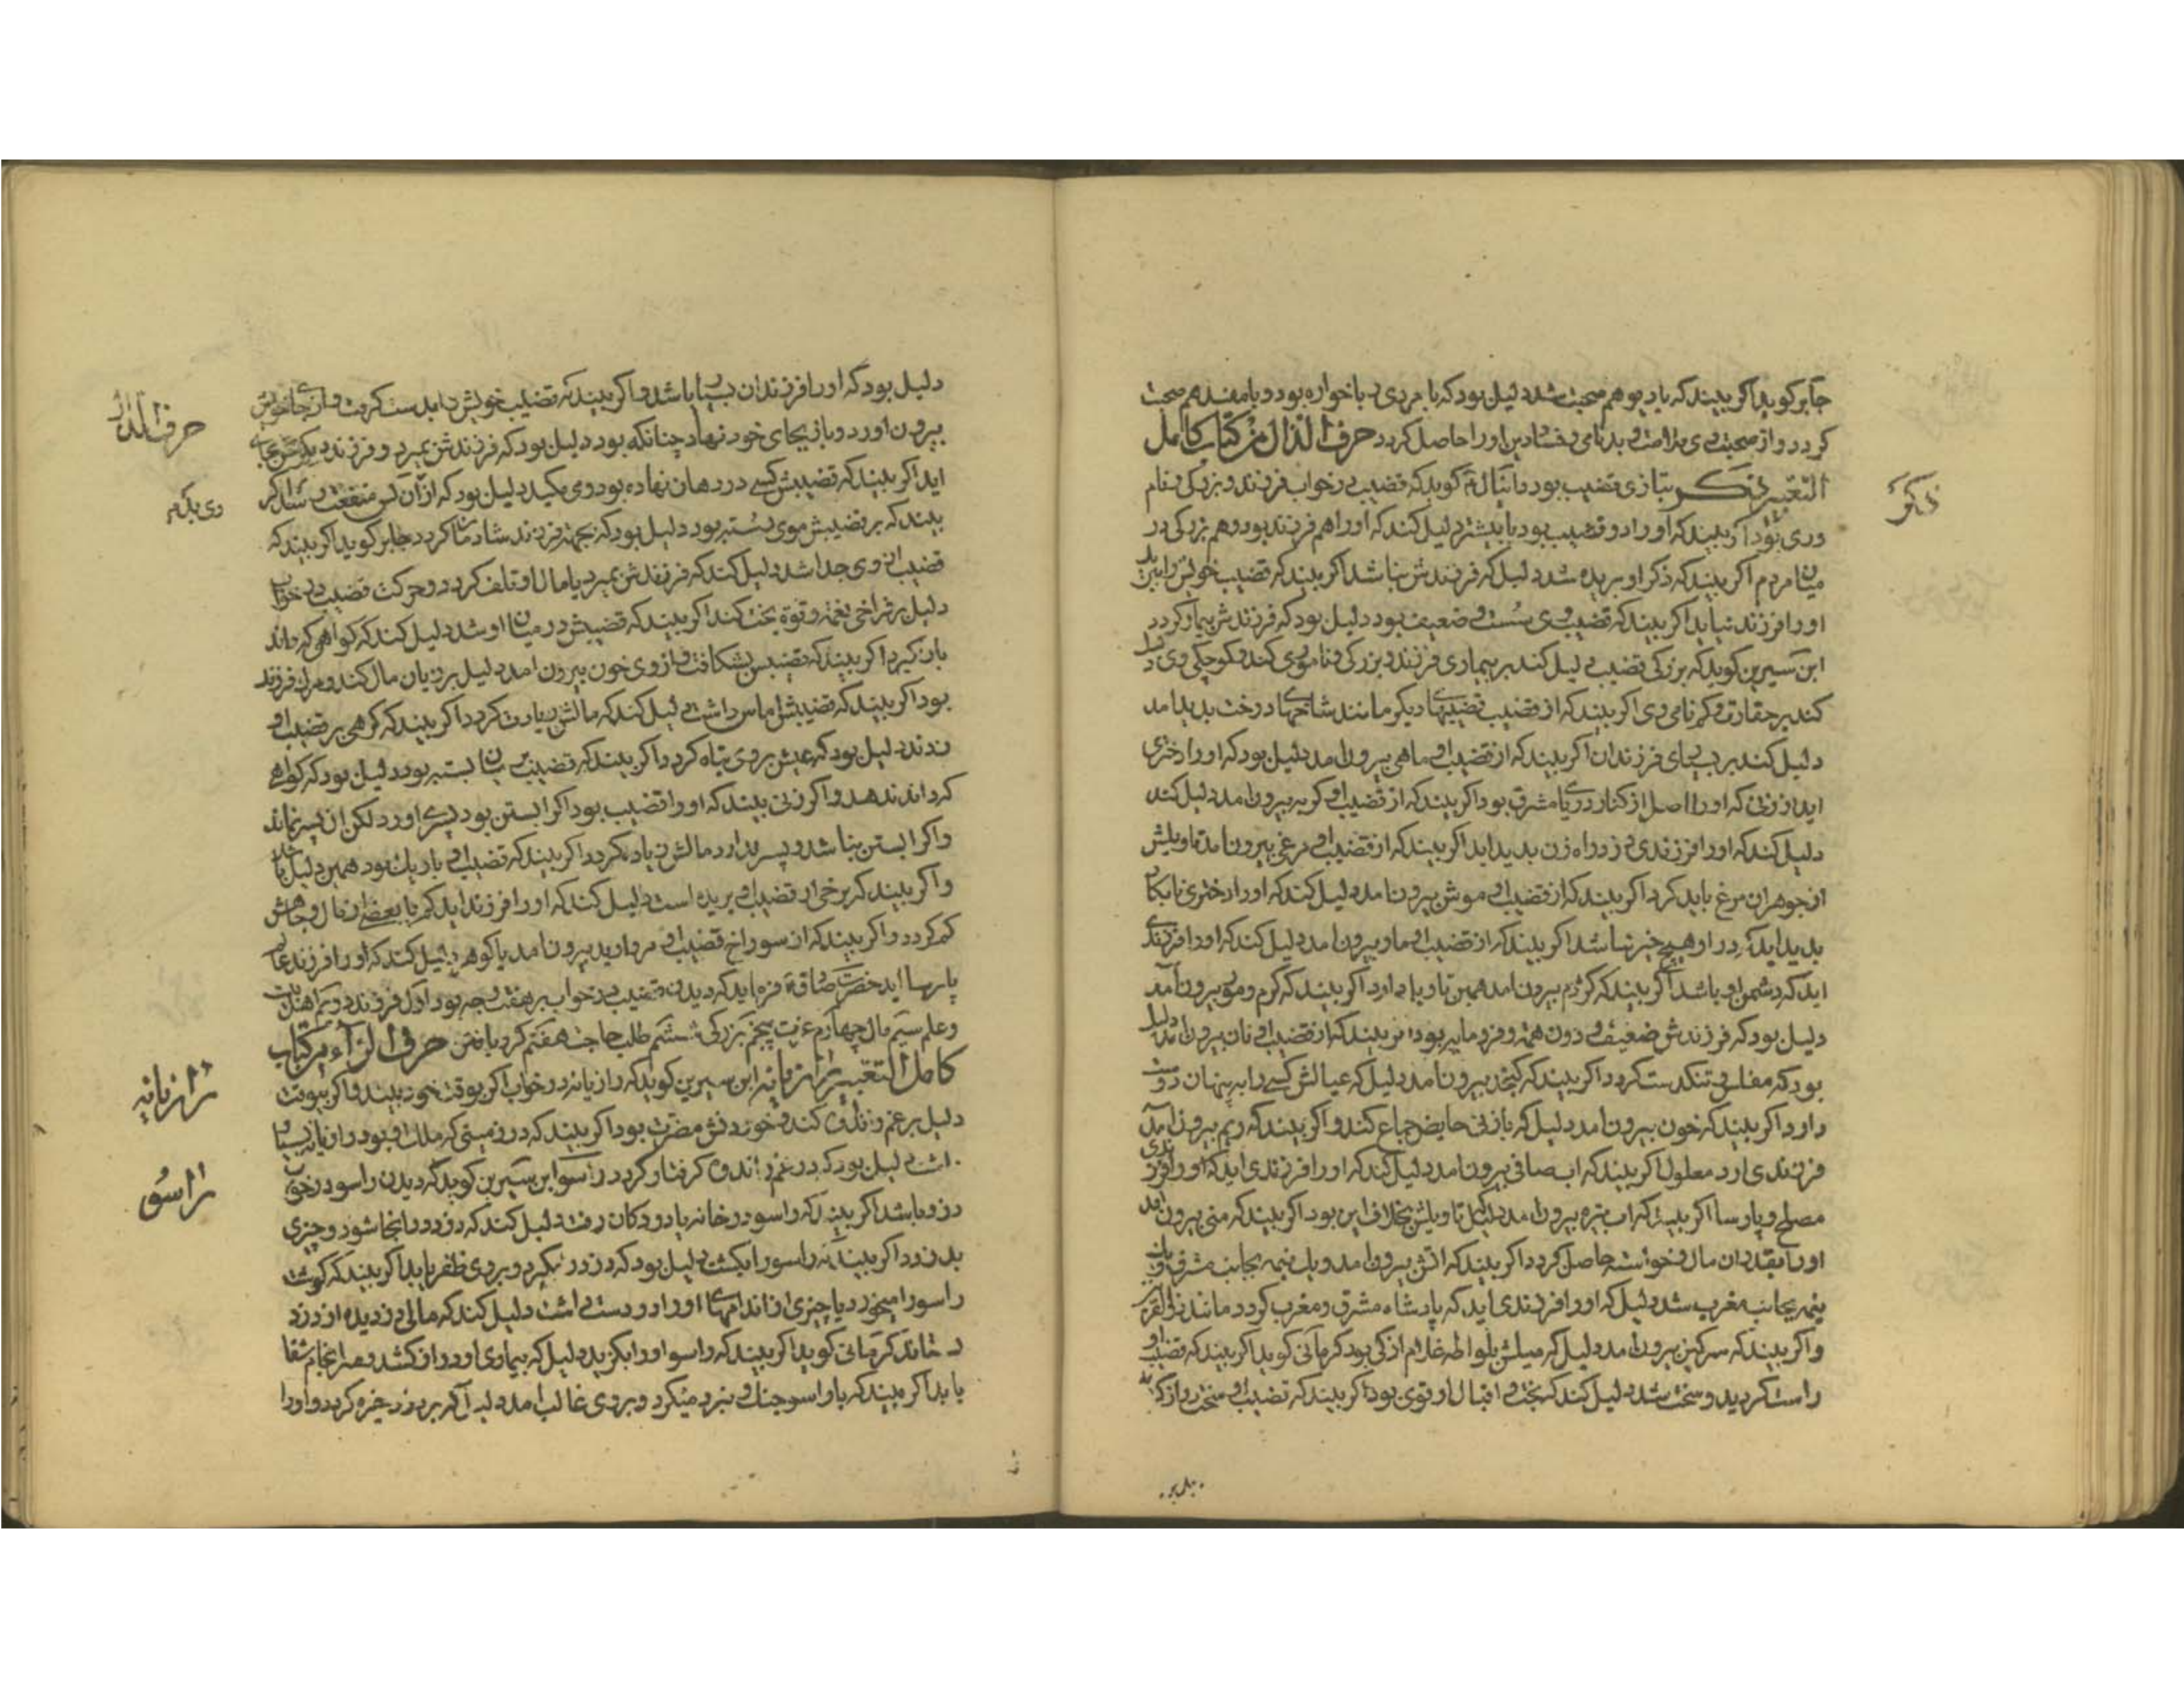 جابر کوید اکر بیند که با دیو هم صحبت شد دلیل بود که با مردی ربا خواره بود و با مفسد هم صحبت
کردد و از صحبت وی ملامت و بدنامی و فساد دین او را حاصل کردد حرف الذال من کتاب کامل
التعبیر ذکر بتازی قضیب بود دانیال کوید که قضیب در خواب فرزند و بزرکی و نام
وری بود اکر بیند که او را دو قضیب بود یا بیشتر دلیل کند که او را هم فرزند بود و هم بزرکی در
میان مردم اکر بیند که ذکر او بریده شد دلیل که فرزندش نباشد اکر بیند که قضیب خویش را ببرید
او را فرزند نیاید اکر بیند که قضیب وی سست و ضعیف بود دلیل بود که فرزندش بیمار کردد
ابن سیرین کوید که بزرکی قضیب دلیل کند بر بیماری فرزند و بزرکی و نامویی کند و کوچکی وی دلیل
کند بر حقارت و کم نامی وی اکر بیند که از قضیب قضیبها دیکر مانند شاخهای درخت پدید امد
دلیل کند بر بسیای فرزندان اکر بیند که از قضیب او ماهی بیرون امد دلیل بود که او را دختری
اید از زنی که او را اصل از کنار دریا مشرق بود اکر بیند که از قضیب او کربه بیرون امد دلیل کند
دلیل کند که او را فرزندی دزد و راه زن پدید اید اکر بیند که از قضیب او مرغی بیرون امد تاویلش
از جوهر ان مرغ باید کرد اکر بیند که از قضیب او موش بیرون امد دلیل کند که او را دختری نابکار
پدید اید که در او هیچ خیر نباشد اکر بیند که از قضیب او مار بیرون امد دلیل کند که او را فرزندی
اید که دشمن او باشد اکر بیند که کژدم بیرون امد همین تاویل دارد اکر بیند که کرم و موی بیرون امد
دلیل بود که فرزندش ضعیف و دون همت و فرومایه بود اکر بیند که از قضیب او نان بیرون امد دلیل
بود که مفلس و تنکدست کردد اکر بیند که کنجد بیرون امد دلیل که عیالش کسی را به پنهان دوست
دارد اکر بیند که خون بیرون امد دلیل که با زنی حایض جماع کند و اکر بیند که ریم بیرون امد
فرزندی ارد معلول اکر بیند که اب صافی بیرون امد دلیل کند که او را فرزندی اید که او را فرزندی
مصلح و پارسا اکر بیند که اب تیره بیرون امد دلیل تاویلش بخلاف این بود اکر بیند که منی بیرون امد
او را بقدر ان مال و خواسته حاصل کردد اکر بیند که اتش بیرون امد و یک نیمه بجانب مشرق و یک
نیمه بجانب مغرب شد دلیل که او را فرزندی اید که پادشاه مشرق و مغرب کردد مانند ذی القرنین
و اکر بیند که سرکین بیرون امد دلیل که میلش بلواطه غلام ازکی بود کرمانی کوید اکر بیند که قضیب او
راست کردید و سخت شد دلیل کند که بخت و اقبال او قوی بود اکر بیند که قضیب او سخت دراز کردید
ذکر
دلیل بود که او را فرزندان بسیار باشد و اکر بیند که قضیب خویش را بدست کرفت و از جای خویش
بیرون اورد و باز بجای خود نهاد چنانکه بود دلیل بود که فرزندش بمیرد و فرزند دیکرش بجای
اید اکر بیند که قضیبش کسی در دهان نهاده بود وی مکید دلیل بود که از ان کس منفعت و شاد کر
بیند که بر قضیبش موی رسته بود دلیل بود که بجهت فرزند شادمان کردد جابر کوید اکر بیند که
قضیب از وی جدا شد دلیل کند که فرزندش بمیرد یا مال او تلف کردد و حرکت قضیب در خواب
دلیل بر فراخی نعمت و قوة بخت کند اکر بیند که قضیبش در میان او شد دلیل کند که کواهی که داند
باز کیرد اکر بیند که قضیبش بشکافت و از وی خون بیرون امد دلیل بر زیان مال کند و مرک فرزند
بود اکر بیند که قضیبش اماس داشت دلیل کند که مالش زیادت کردد اکر بیند که کرهی بر قضیب او
زدند دلیل بود که عیش بر وی تباه کردد اکر بیند که قضیب زبان بسته بود دلیل بود که کواهی
که داند ندهد و اکر زنی بیند که او را قضیب بود اکر ابستن بود پسری اورد لکن ان پسر نماند
واکر ابستن نباشد و پسر ندارد مالش زیاده کردد اکر بیند که قضیب او باریک بود همین دلیل دارد
واکر بیند که برخی از قضیب او بریده است دلیل کند که او را فرزند اید کم یا بعضی از مال و جاهش
کم کردد و اکر بیند که از سوراخ قضیب او مروارید بیرون امد یا کوهر دلیل کند که او را فرزند عالم
پارسا اید حضرت صادق فرماید که دیدن قضیب در خواب بر هفت وجه بود اول فرزند دویم اهل بیت
وعلم سیم مال چهارم عزت پنجم بزرکی ششم طلب حاجت هفتم کرد یافتن حرف الراء من کتاب
کامل التعبیر رازیانه ابن سیرین کوید که رازیانه در خواب اکر بوقت خود بیند و اکر بیوقت
دلیل بر غم و اندوه کند و خوردنش مضرت بود اکر بیند که در زمینی که ملک او بود رازیانه بسیار
داشت دلیل بود که در غم و اندوه کرفتار کردد راسو ابن سیرین کوید که دیدن راسو در خواب
دزد باشد اکر بیند که راسو در خانه یا دوکان رفت دلیل کند که دزد در انجا شود و چیزی
بدزدد اکر بیند که راسو را بکشت دلیل بود که دزد را بکیرد و بر وی ظفر یابد اکر بیند که کوشت
راسو را میخورد یا چیزی از اندامهای او را در دست داشت دلیل کند که مالی دزدیده از دزد
بستاند کرمانی کوید اکر بیند که راسو او را بکزید دلیل که بیماری او دراز کشد و سرانجام شفا
یابد اکر بیند که با راسو جنک و نبرد میکرد و بر وی غالب امد دلیل که بر دزد چیره کردد و او را
حرف الذال
رازیانه
راسو